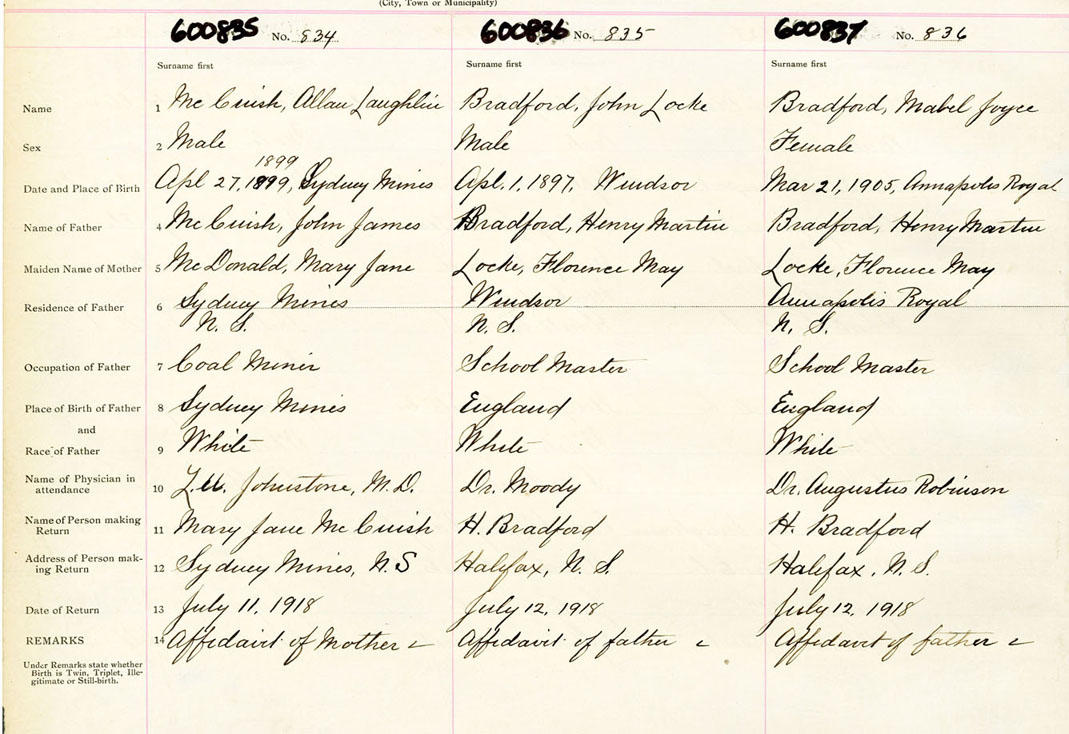 (City, Town or Municipality)
600835 No. 834 600836 No. 835 600837 No. 836
Surname first Surname first Surname first
Name 1 Mc Cuish, Allan Laughlin Bradford, John Locke Bradford, Mabel Joyce
Sex 2 Male Male Female
1899
Date and Place of Birth 3 Apl 27, 1899, Sydney Mines Apl. 1, 1897, Windsor Mar 21, 1905, Annapolis Royal
Name of Father 4 Mc Cuish, John James Bradford, Henry Martin Bradford, Henry Martin
Maiden Name of Mother 5 Mc Donald, Mary Jane Locke, Florence May Locke, Florence May
Residence of Father 6 Sydney Mines Windsor Annapolis Royal
N. S. N. S. N. S.
Occupation of Father 7 Coal Miner School Master School Master
Place of Birth of Father 8 Sydney Mines England England
and
Race of Father 9 White White White
Name of Physician in
attendance 10 Johnstone, M.D. Dr. Moody Dr. Augustus Robinson
Name of Person making
Return 11 Mary Jane Mc Cuish H. Bradford H. Bradford
Address of Person mak-
ing Return 12 Sydney Mines, N.S Halifax, N. S. Halifax, N. S.
Date of Return 13 July 11, 1918 July 12, 1918 July 12, 1918
REMARKS 14 Affidavit of Mother Affidavit of father Affidavit of father
Under Remarks state whether
Birth is Twin, Triplet, Ille-
gitimate or Still-birth.